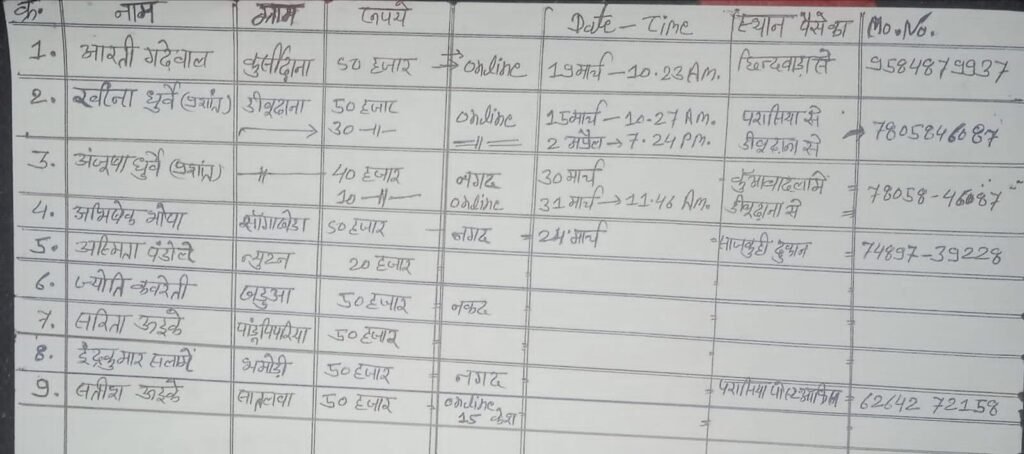 क्र. नाम ग्राम रुपये Date - Time स्थान पैसे का Mo.No.
1. आरती गदेवाल कुर्सीढाना 50 हजार → online 19 मार्च - 10.23 Am. छिन्दवाड़ा से 9584879937
2. रवीना धुर्वे (प्रशांत) डीबूढाना 50 हजार online 15 मार्च - 10.27 Am. परासिया से
30 -"- -"- 2 अप्रैल → 7.24 PM. डीबूढाना से → 7805846087
3. अंजूषा धुर्वे (प्रशांत) -"- 40 हजार नगद 30 मार्च 78058-46087
10 -"- online 31 मार्च → 11.46 Am. डीबूढाना से
4. अभिषेक गोपा 50 हजार - नगद - 24 मार्च दुकान 74897-39228
5. न्युटन 20 हजार
6. ज्योति कवरेती 50 हजार - नकद
7. सरिता ऊइके पांडुपिपरिया 50 हजार
8. इंद्रकुमार सलामे भमोड़ी 50 हजार - नगद
9. सतीश ऊइके सातलवा 50 हजार - online परासिया पोस्ट ऑफिस = 62642 72158
15 केश